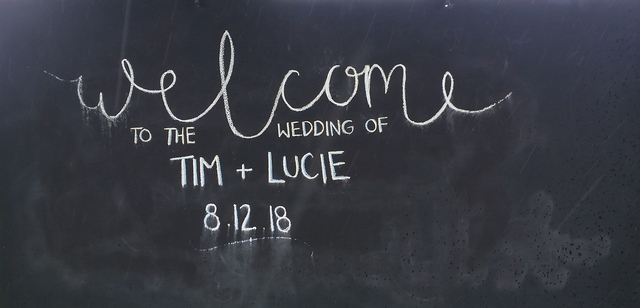 welcome
TO THE WEDDING OF
TIM + LUCIE
8.12.18